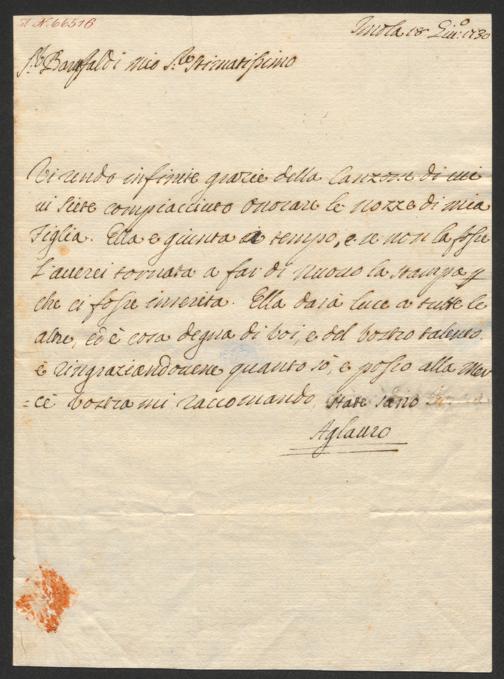 N. 66516
Imola 18 Giu.o 1730
S.r Baruffaldi mio S.re Stimatissimo
Vi rendo infinite grazie della Canzone di cui
vi siete compiacciuto onorare le nozze di mia
Figlia. Ella è giunta a tempo, e se non la fosse
l'averei tornata a far di nuovo la stampa p
che ci fosse inserita. Ella darà luce a tutte le
altre, ed è cosa degna di Voi, e del vostro talento
e ringraziandovene quanto sò, e posso alla Mer=
=cè vostra mi raccomando. State sano
Aglauro